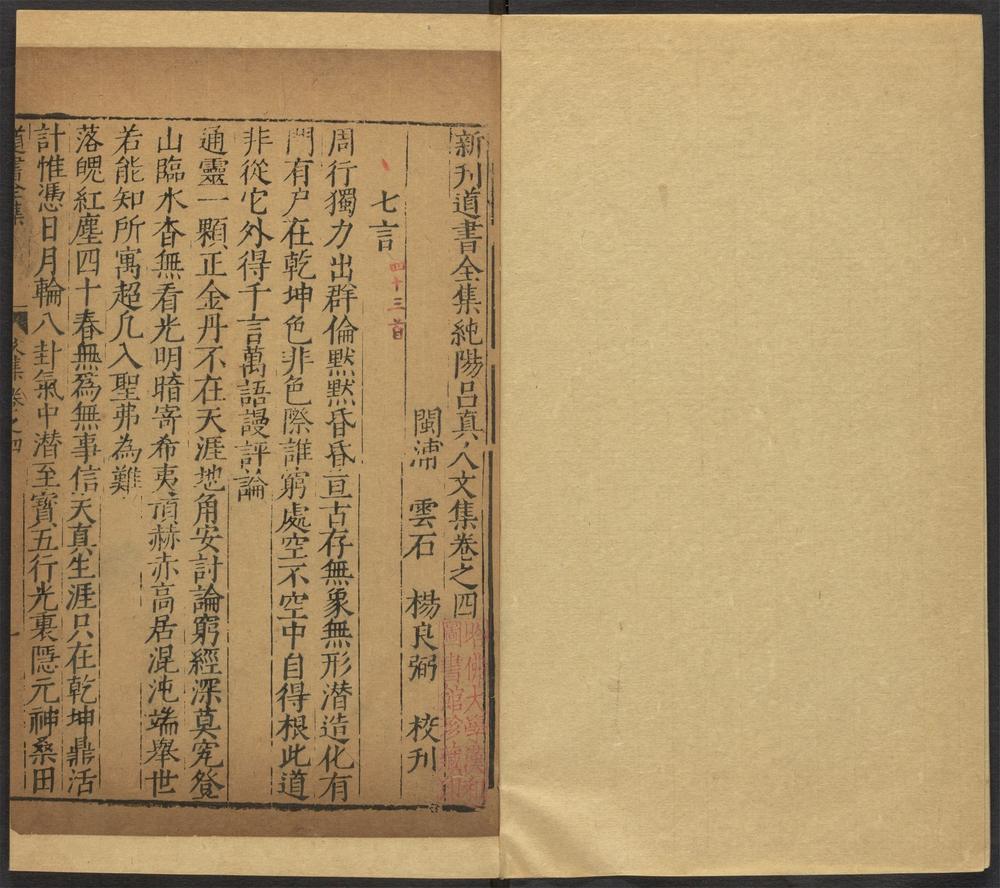 新刋道書全集純陽呂真人文集卷之四
閩浦 雲石 楊良弼 校刋
七言
四十三首
周行獨力出群倫默默昏昏亘古存無象無形潜造化有
門有户在乾坤色非色際誰窮處空不空中自得根此道
非從它外得千言萬語謾評論
通靈一顆正金丹不在天涯地角安討論窮經深莫究登
山臨水杳無看光明暗寄希夷頂赫赤高居混沌端舉世
若能知所寓超凢入聖弗為難
落魄紅塵四十春無為無事信天真生涯只在乾坤鼎活
計惟憑日月輪八卦氣中潜至寳五行光裏隱元神桑田
道書全集
卷之四
一
哈佛大學漢和
圖書館珍藏印